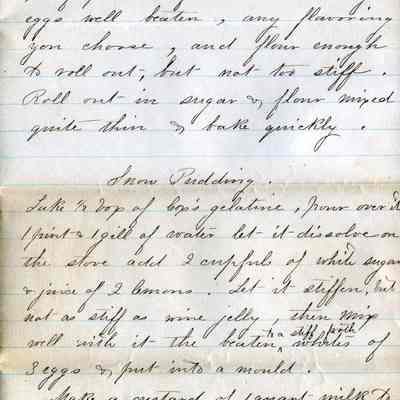 eggs well beaten, any flavoring
you choose, and flour enough
to roll out, but not too stiff.
Roll out in sugar & flour mixed
quite thin & bake quickly.
Snow Pudding.
Take ½ box of Cox's gelatine, pour over it
1 pint & 1 gill of water let it dissolve on
the stove add 2 cupfuls of white sugar
& juice of 2 lemons. Let it stiffen, but
not as stiff as wine jelly, then mix
to a stiff froth
well with it the beaten, whites of
3 eggs & put into a mould.
Make a custard of 1 quart milk to